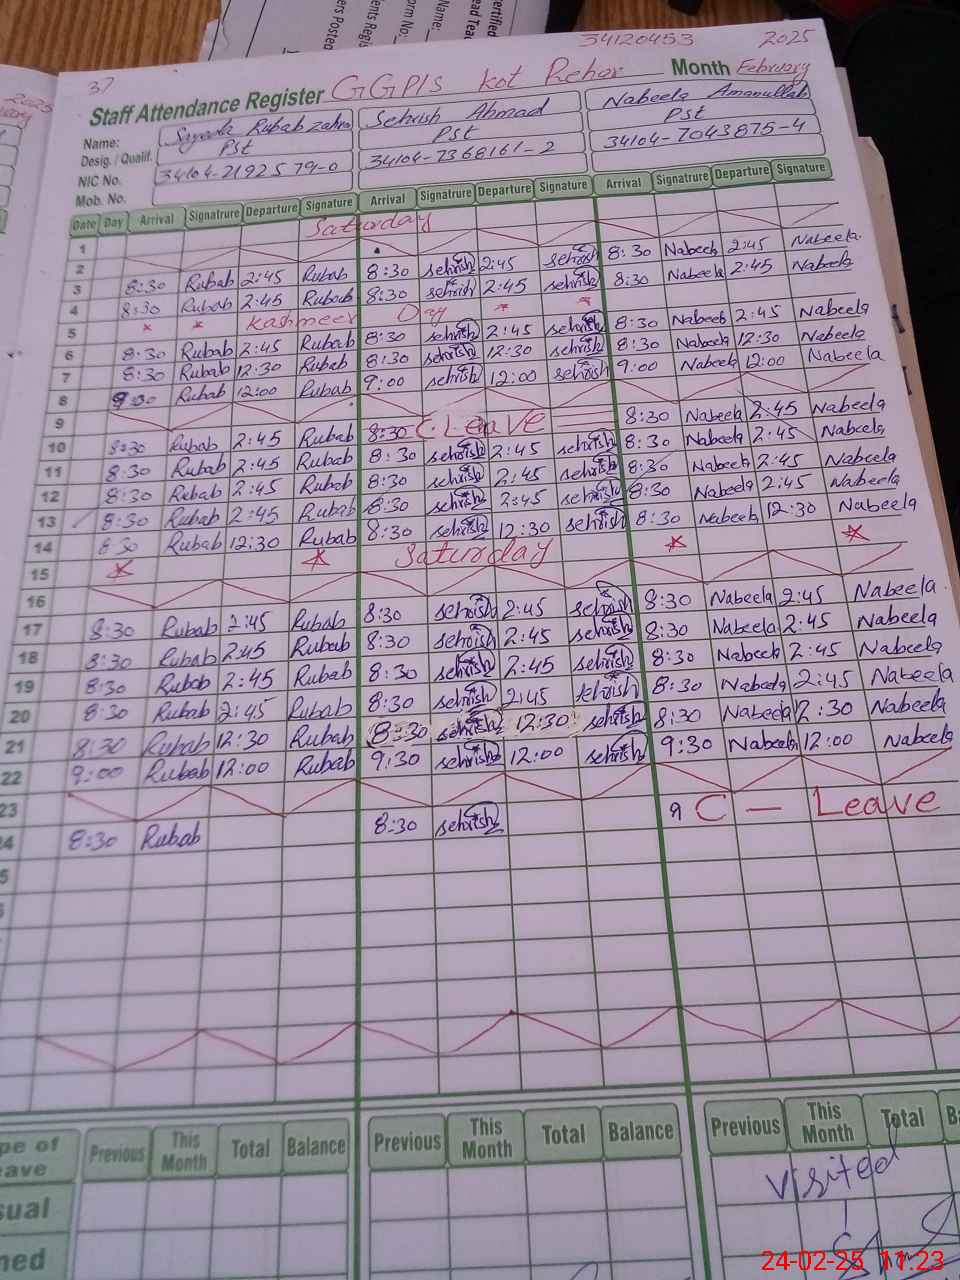 34120453 2025
37 Staff Attendance Register GGPIS kot Rehar Month February
Name: Sayeda Rubab zahra Sehrish Ahmad Nabeela Amanullah
Desig. / Qualif. Pst Pst Pst
NIC No. 34104-2192579-0 34104-7368161-2 34104-7043875-4
Mob. No.
Date Day Arrival Signatrure Departure Signature Arrival Signatrure Departure Signature Arrival Signatrure Departure Signature
1 Saturday
2
3 8:30 Rubab 2:45 Rubab 8:30 sehrish 2:45 sehrish 8:30 Nabeela 2:45 Nabeela
4 8:30 Rubab 2:45 Rubab 8:30 sehrish 2:45 sehrish 8:30 Nabeela 2:45 Nabeela
5 * * Kashmeer Day * *
6 8:30 Rubab 2:45 Rubab 8:30 sehrish 2:45 sehrish 8:30 Nabeela 2:45 Nabeela
7 8:30 Rubab 12:30 Rubab 8:30 sehrish 12:30 sehrish 8:30 Nabeela 12:30 Nabeela
8 9:00 Rubab 12:00 Rubab 9:00 sehrish 12:00 sehrish 9:00 Nabeela 12:00 Nabeela
9
10 8:30 Rubab 2:45 Rubab 8:30 C Leave 8:30 Nabeela 2:45 Nabeela
11 8:30 Rubab 2:45 Rubab 8:30 sehrish 2:45 sehrish 8:30 Nabeela 2:45 Nabeela
12 8:30 Rubab 2:45 Rubab 8:30 sehrish 2:45 sehrish 8:30 Nabeela 2:45 Nabeela
13 8:30 Rubab 2:45 Rubab 8:30 sehrish 2:45 sehrish 8:30 Nabeela 2:45 Nabeela
14 8:30 Rubab 12:30 Rubab 8:30 sehrish 12:30 sehrish 8:30 Nabeela 12:30 Nabeela
15 * * Saturday * *
16
17 8:30 Rubab 2:45 Rubab 8:30 sehrish 2:45 sehrish 8:30 Nabeela 2:45 Nabeela
18 8:30 Rubab 2:45 Rubab 8:30 sehrish 2:45 sehrish 8:30 Nabeela 2:45 Nabeela
19 8:30 Rubab 2:45 Rubab 8:30 sehrish 2:45 sehrish 8:30 Nabeela 2:45 Nabeela
20 8:30 Rubab 2:45 Rubab 8:30 sehrish 2:45 sehrish 8:30 Nabeela 2:45 Nabeela
21 8:30 Rubab 12:30 Rubab 8:30 sehrish 12:30 sehrish 8:30 Nabeela 2:30 Nabeela
22 9:00 Rubab 12:00 Rubab 9:30 sehrish 12:00 sehrish 9:30 Nabeela 12:00 Nabeela
23
4 8:30 Rubab 8:30 sehrish C — Leave
pe of eave Previous This Month Total Balance Previous This Month Total Balance Previous This Month Total Ba
sual
visited
24-02-25 11:23